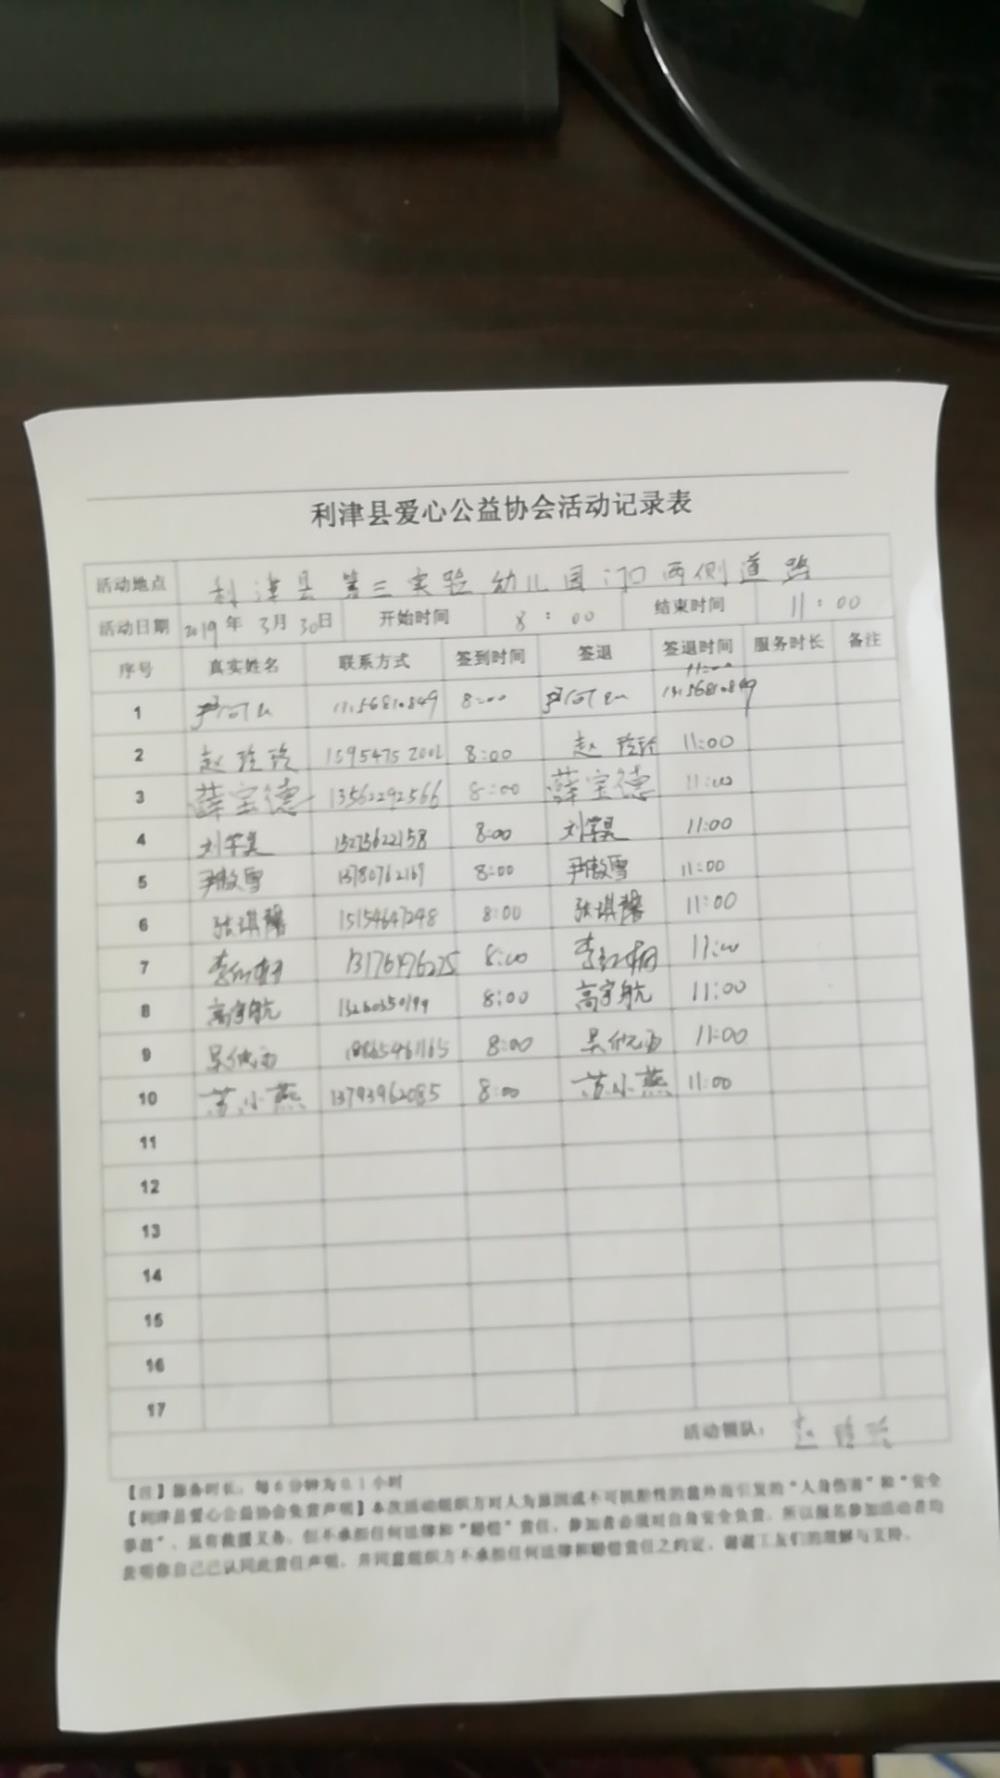 利津县爱心公益协会活动记录表
活动地点 利津县第三实验幼儿园门口两侧道路
活动日期 2019年3月30日 开始时间 8:00 结束时间 11:00
序号 真实姓名 联系方式 签到时间 签退 签退时间 服务时长 备注
1 8:00 11:00
2 赵玲玲 8:00 赵玲玲 11:00
3 薛宝德 13562292566 8:00 薛宝德 11:00
4 15275622158 8:00 11:00
5 尹傲雪 13780762169 8:00 尹傲雪 11:00
6 张琪馨 15154647298 8:00 张琪馨 11:00
7 13176496275 8:00 11:00
8 高宇航 8:00 高宇航 11:00
9 18865461165 8:00 11:00
10 苏小燕 13793962085 8:00 苏小燕 11:00
11
12
13
14
15
16
17
活动领队： 赵玲玲
【注】服务时长：每6分钟为0.1小时
【利津县爱心公益协会免责声明】本次活动组织方对人为原因或不可抗拒性的意外而引发的“人身伤害”和“安全
事故”，虽有救援义务，但不承担任何法律和“赔偿”责任，参加者必须对自身安全负责，所以报名参加活动者均
表明你自己已认同此责任声明，并同意组织方不承担任何法律和赔偿责任之约定，谢谢工友们的理解与支持。